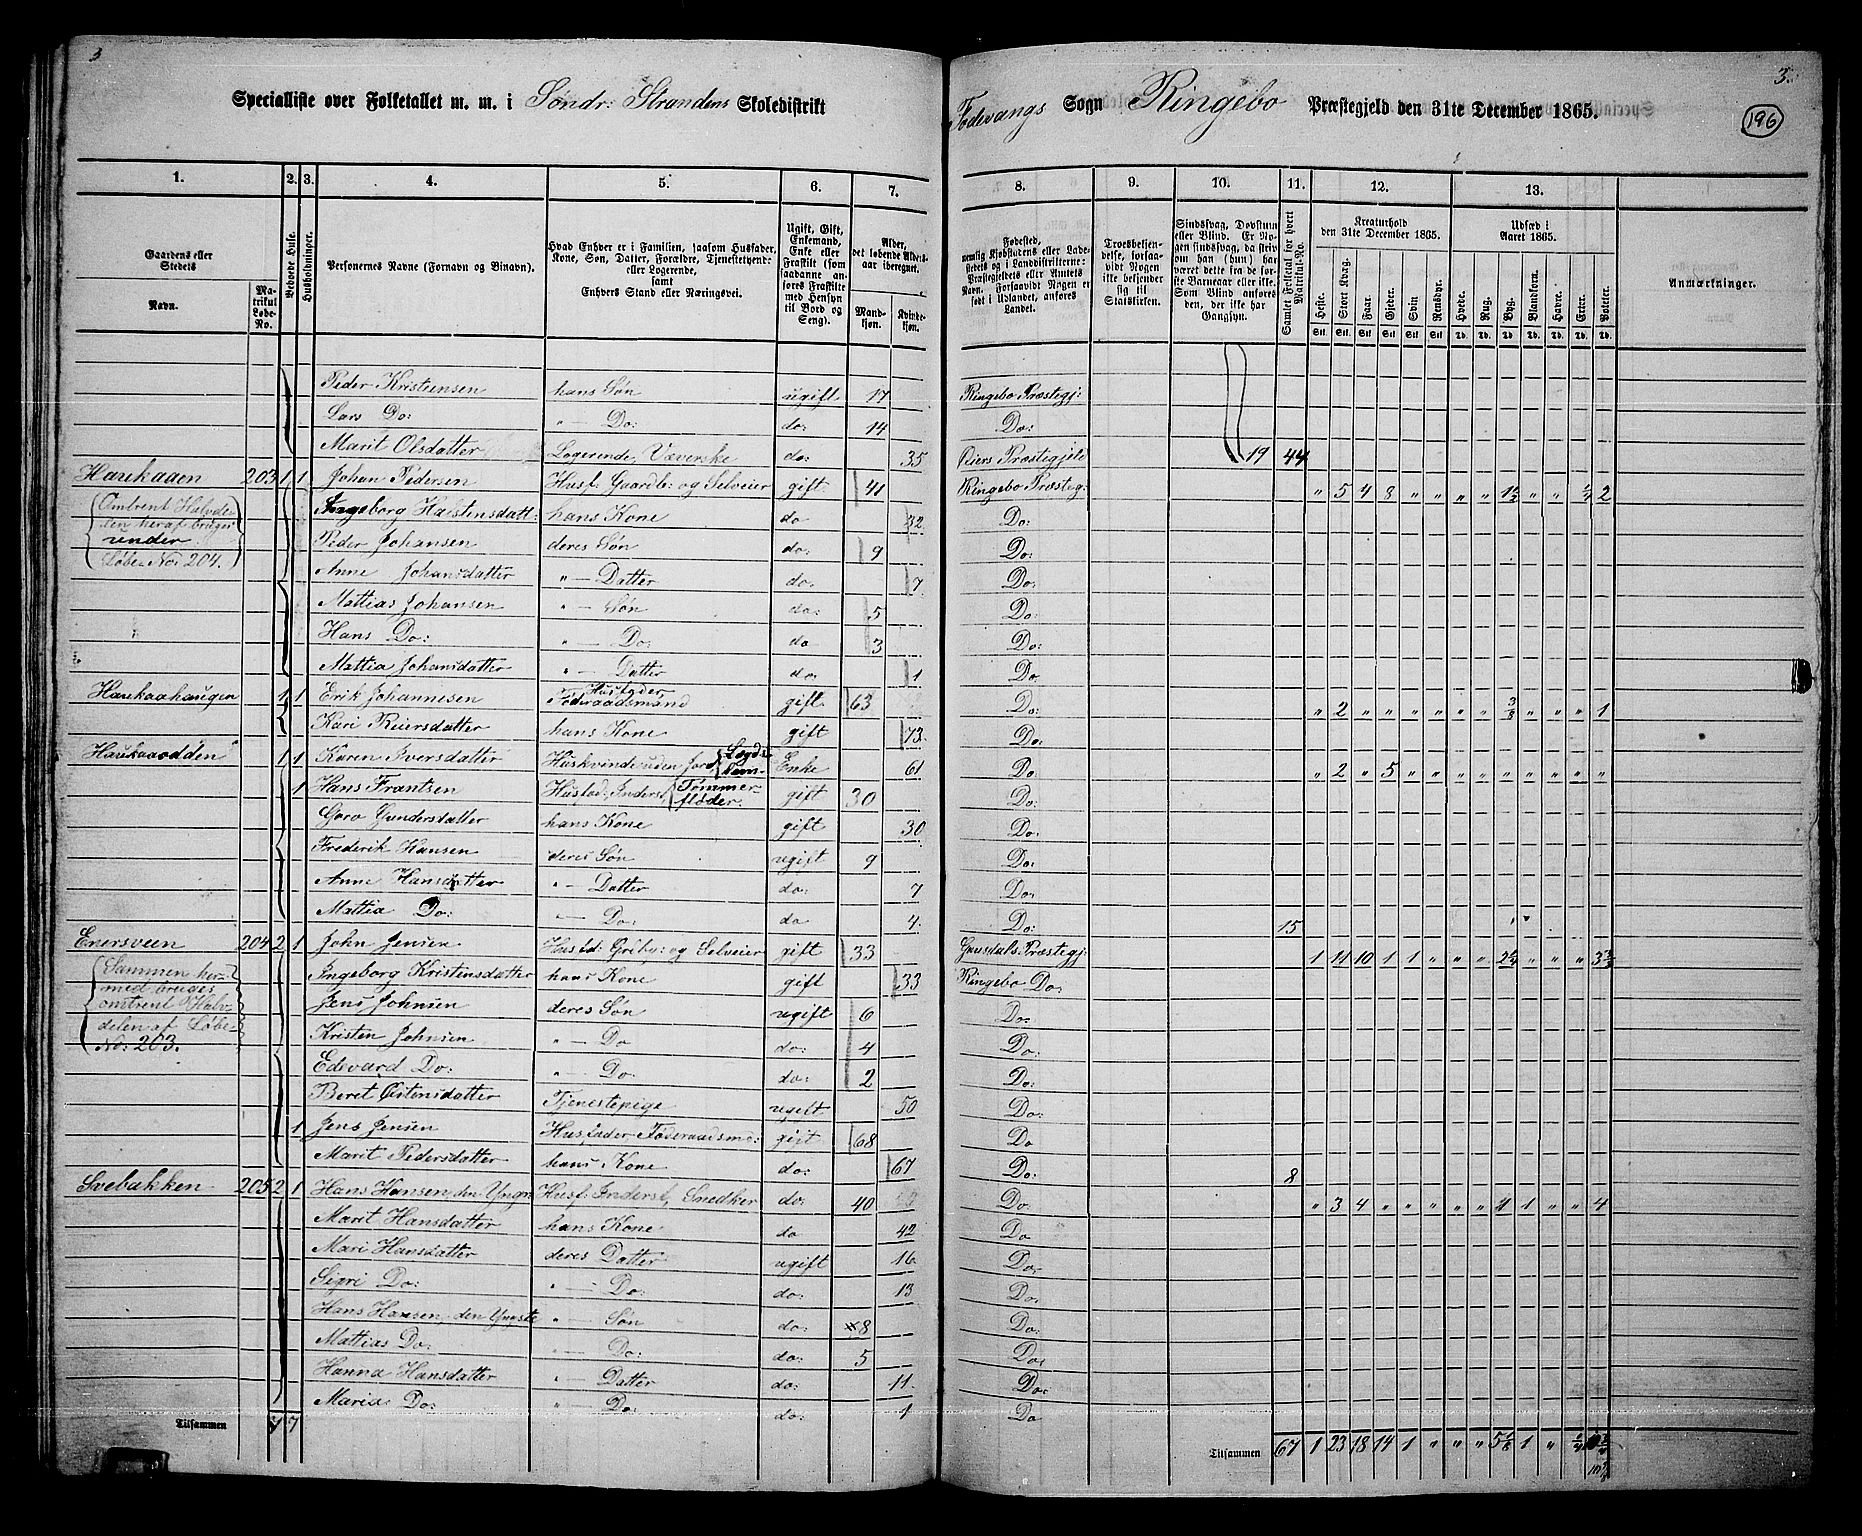 3
3.
196
Specialliste over Folketallet m. m. i Søndr: Strandens Skoledistrikt
Fodevangs Sogn Ringebo Præstegjeld den 31te December 1865.
1. 2. 3. 4. 5. 6. 7. 8. 9. 10. 11. 12. 13.
Gaardens eller Stedets
Navn.
Matrikul Løbe-No.
Beboede Huse.
Husholdninger.
Personernes Navne (Fornavn og Binavn).
Hvad Enhver er i Familien, saasom Husfader, Kone, Søn, Datter, Forældre, Tjenestetyende eller Logerende, samt Enhvers Stand eller Næringsvei.
Ugift, Gift, Enkemand, Enke eller Fraskilt (som saadanne anføres Fraskilte med Hensyn til Bord og Seng).
Alder, det løbende Aldersaar iberegnet.
Mandkjøn. Kvindekjøn.
Fødested,
Troesbekjendelse, forsaavidt Nogen ikke bekjender sig til Statskirken.
Sindssvag, Døvstum eller Blind. Er Nogen sindssvag, da skriv om han (hun) har været dette fra de første Barneaar eller ikke. Som Blind anføres den, der ikke har Gangsyn.
Samlet Folketal for hvert Matrikul-No.
Kreaturhold den 31te December 1865.
Heste. Stort Kvæg. Faar. Gjeder. Svin Rensdyr.
Udsæd i Aaret 1865.
Hvede. Rug. Byg. Blandkorn. Havre. Erter. Poteter.
Anmærkninger.
Peder Kristensen hans Søn ugift 17 Ringebo Præstegj:
Lars Do: " — Do: do: 14 Do:
Marit Olsdatter Logerende, Væverske do: 35 Øiers Præstegjeld 19 44
Haukaaen 203 1 1 Johan Pedersen Husf. Gaardb: og Selveier gift 41 Ringebo Præsteg: " 5 4 8 " " " " 1½ " " ¼ 2
(Ombrent Halvdelen heraf bruges under Løbe No: 204.)
Ingeborg Haistensdatt: hans Kone do 32 Do:
Peder Johansen deres Søn do: 9 Do:
Anne Johansdatter " — Datter do: 7 Do:
Mattias Johansen " — Søn do: 5 Do:
Hans Do: " — Do: do 3 Do:
Mattia Johansdatter " — Datter do: 1 Do:
Haukaahaugen 1 1 Erik Johannesen Husfader Føderaadsmand gift 63 Do: " 2 " " " " " " " " " 1
Kari Reiersdatter hans Kone gift 73 Do:
Haukaaodden 1 1 Karen Iversdatter Huskvinde uden Jord, Enke 61 Do: " 2 " 5 " " " " " " " " "
1 Hans Frantsen Husfad: Inderst, Tømmerfløder gift 30 Do:
Goro Gundersdatter hans Kone gift 30 Do:
Frederik Hansen deres Søn ugift 9 Do:
Anne Hansdatter " — Datter do: 7 Do:
Mattia Do: " — Do: do 4 Do: 15
Enersveen 204 2 1 John Jensen Husfd: Grdbr: og Selveier gift 33 Gausdals Præstegj: 1 11 10 1 1 " " " 2¼ " " "
(Sammen hermed bruges omtrent Halvdelen af Løbe No: 203.
Ingeborg Kristensdatter hans Kone gift 33 Ringebo Do:
Jens Johnsen deres Søn ugift 6 Do:
Kristen Johnsen " — Do do: 4 Do:
Edevard Do: " — Do: do: 2 Do:
Beret Østensdatter Tjenestepige ugift 50 Do:
1 Jens Jensen Husfader Føderaadsmd: gift 68 Do
Marit Pedersdatter hans Kone do: 67 Do: 8
Svebakken 205 2 1 Hans Hansen den Yngre Husf: Inderst, Snedker do: 40 Do " 3 4 " " " " " 1 1 " " 4
Marit Hansdatter hans Kone do 42 Do
Mari Hansdatter deres Datter ugift 16 Do:
Sigri Do: " — Do: do: 13 Do:
Hans Hansen den Yngste " — Søn do: 8 Do:
Mattias Do: " — Do: do: 5 Do:
Hanna Hansdatter " — Datter do: 11 Do:
Maria Do: " — Do: do: 1 Do
Tilsammen 7 7
Tilsammen 67 1 23 18 14 1 " " " 1 "